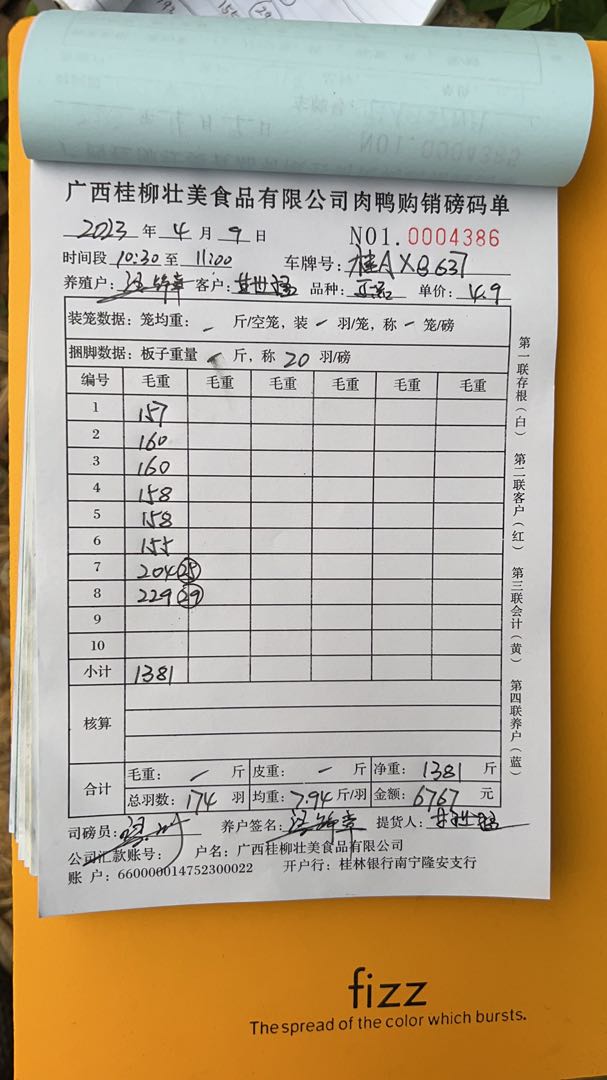 155 29
广西桂柳壮美食品有限公司肉鸭购销磅码单
2023 年 4 月 9 日 NO1. 0004386
时间段 10:30 至 11:00 车牌号: 桂AXB637
养殖户: 客户: 甘世强 品种: 单价: 4.9
装笼数据: 笼均重: - 斤/空笼, 装 - 羽/笼, 称 - 笼/磅
捆脚数据: 板子重量 - 斤, 称 20 羽/磅
编号 毛重 毛重 毛重 毛重 毛重 毛重
1 157
2 160
3 160
4 158
5 158
6 155
7 204 25
8 229 29
9
10
小计 1381
核算
合计 毛重: - 斤 皮重: - 斤 净重: 1381 斤
总羽数: 174 羽 均重: 7.94 斤/羽 金额: 6767 元
第一联存根(白) 第二联客户(红) 第三联会计(黄) 第四联养户(蓝)
司磅员: 养户签名: 提货人: 甘世强
公司汇款账号: 户名: 广西桂柳壮美食品有限公司
账 户: 660000014752300022 开户行: 桂林银行南宁隆安支行
fizz
The spread of the color which bursts.